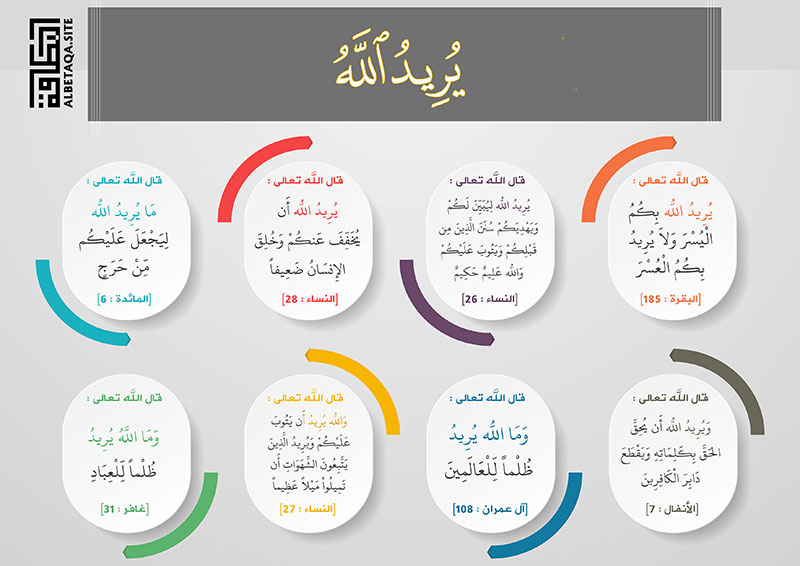 البطاقة
ALBETAQA.SITE
يُرِيدُ ٱللَّهُ
قال اللَّه تعالى :
يُرِيدُ اللّه بِكُمُ
الْيُسْرَ وَلاَ يُرِيدُ
بِكُمُ الْعُسْرَ
[البقرة : 185]
قال اللَّه تعالى :
يُرِيدُ اللّه لِيُبَيِّنَ لَكُمْ
وَيَهْدِيَكُمْ سُنَنَ الَّذِينَ مِن
قَبْلِكُمْ وَيَتُوبَ عَلَيْكُمْ
وَاللّه عَلِيمٌ حَكِيمٌ
[النساء : 26]
قال اللَّه تعالى :
يُرِيدُ اللّه أَن
يُخَفِّفَ عَنكُمْ وَخُلِقَ
الإِنسَانُ ضَعِيفاً
[النساء : 28]
قال اللَّه تعالى :
مَا يُرِيدُ اللّه
لِيَجْعَلَ عَلَيْكُم
مِّنْ حَرَجٍ
[المائدة : 6]
قال اللَّه تعالى :
وَيُرِيدُ اللّه أَن يُحِقَّ
الحَقَّ بِكَلِمَاتِهِ وَيَقْطَعَ
دَابِرَ الْكَافِرِينَ
[الأنفال : 7]
قال اللَّه تعالى :
وَمَا اللّه يُرِيدُ
ظُلْماً لِّلْعَالَمِينَ
[آل عمران : 108]
قال اللَّه تعالى :
وَاللّه يُرِيدُ أَن يَتُوبَ
عَلَيْكُمْ وَيُرِيدُ الَّذِينَ
يَتَّبِعُونَ الشَّهَوَاتِ أَن
تَمِيلُواْ مَيْلاً عَظِيماً
[النساء : 27]
قال اللَّه تعالى :
وَمَا اللَّهُ يُرِيدُ
ظُلْماً لِّلْعِبَادِ
[غافر : 31]